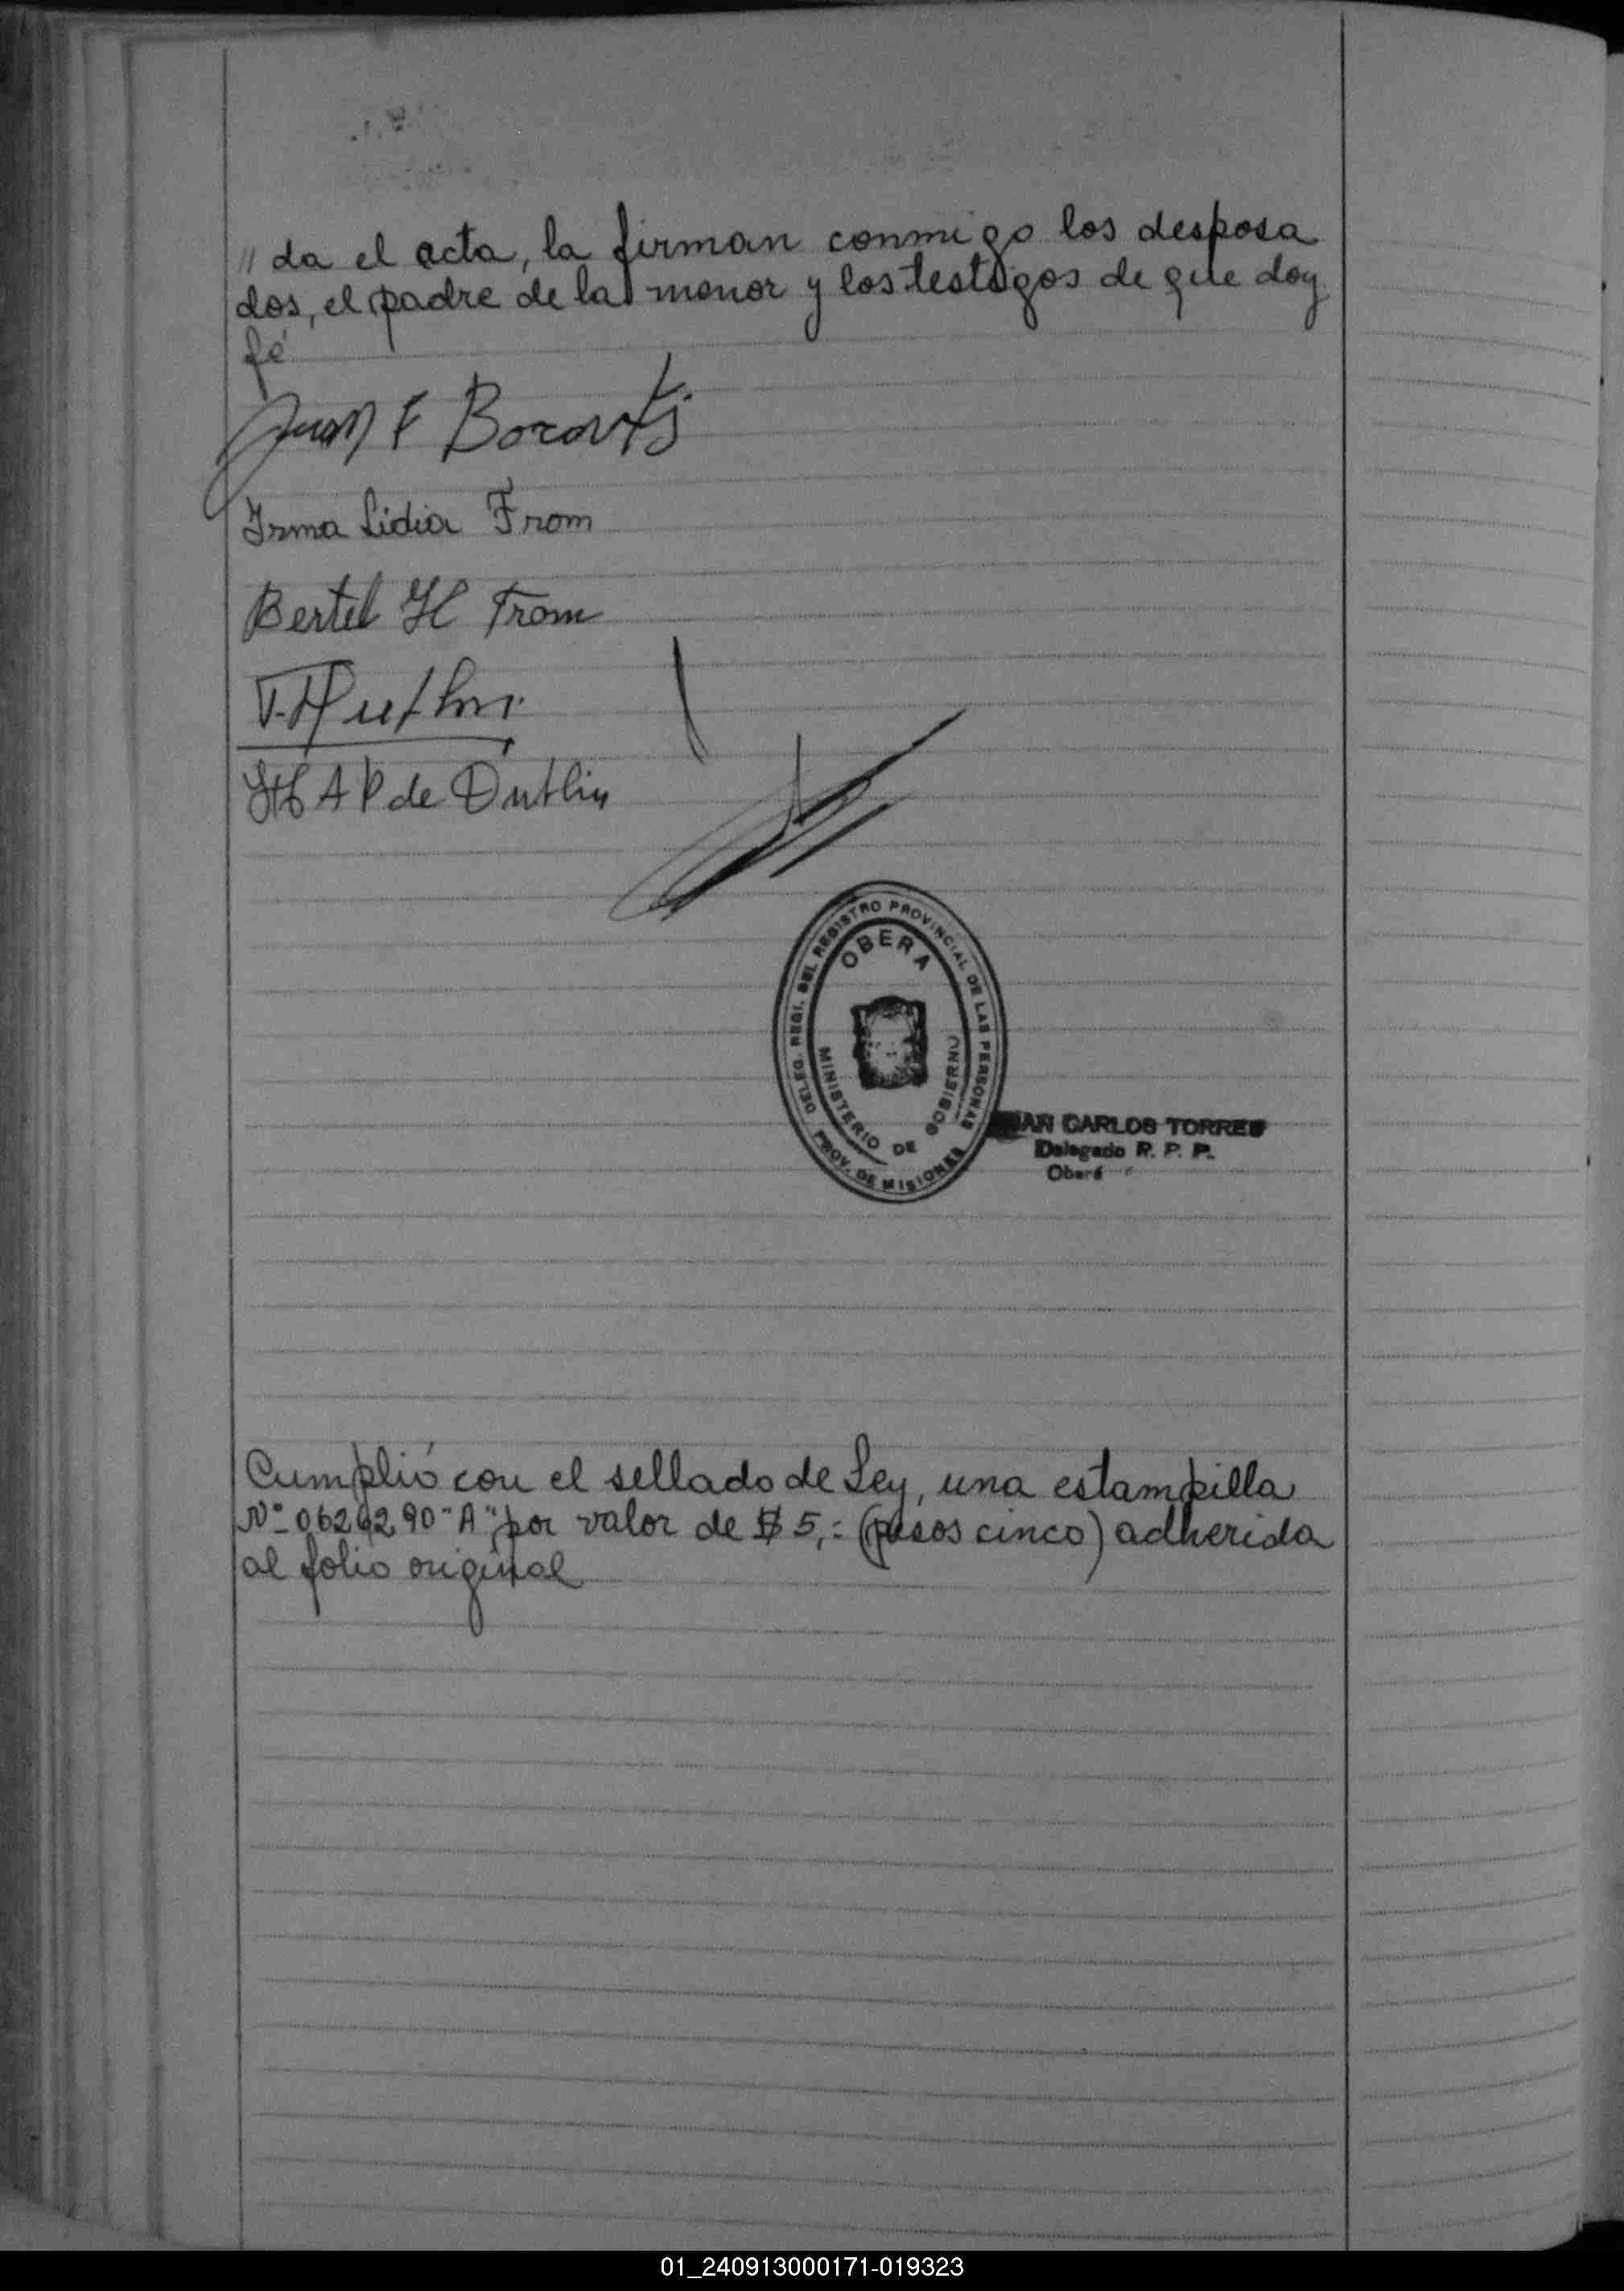 " da el acta, la firman conmigo los desposa
dos, el padre de la menor y los testigos de que doy
fé
Juan F
Irma Lidia From
Bertel H From
A P de Dutlin
DELEG. REGI. DEL REGISTRO PROVINCIAL DE LAS PERSONAS
OBERA
MINISTERIO DE GOBIERNO
PROV. DE MISIONES
CARLOS TORRES
Delegado R. P. P.
Oberá
Cumplió con el sellado de Ley, una estampilla
"A" por valor de $ 5,= (pesos cinco) adherida
al folio original
01_240913000171-019323